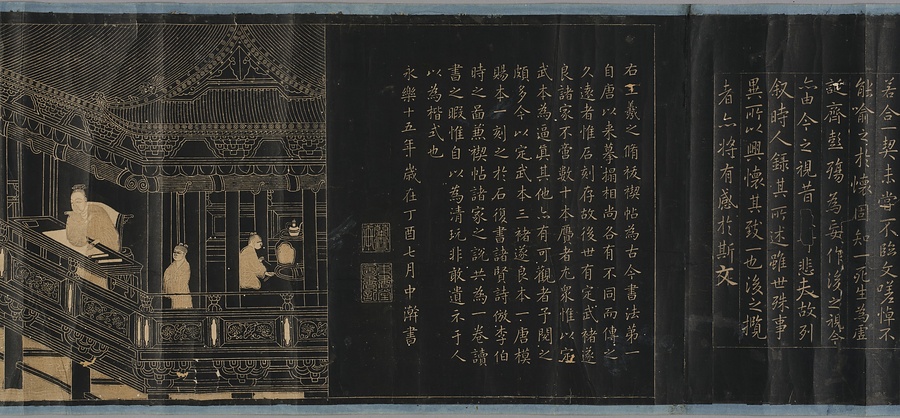 若合一契未嘗不臨文嗟悼不
能喻之於懷固知一死生為虛
誕齊彭殤為妄作後之視今
亦由今之視昔 悲夫故列
叙時人録其所述雖世殊事
異所以興懷其致一也後之攬
者亦將有感於斯文
右王羲之脩袚禊帖為古今書法第一
自唐以来摹搨相尚各有不同而傳之
久遠者惟石刻存故後世有定武褚遂
良諸家不啻數十本贗者尤衆惟以定
武本為逼真其他亦有可觀者予閱之
頗多今以定武本三褚遂良本一唐模
賜本一刻之於石復書諸賢詩倣李伯
時之啚蕙禊帖諸家之說共為一卷讀
書之暇惟自以為清玩非敢遺示于人
以為楷式也
永樂十五年歲在丁酉七月中澣書